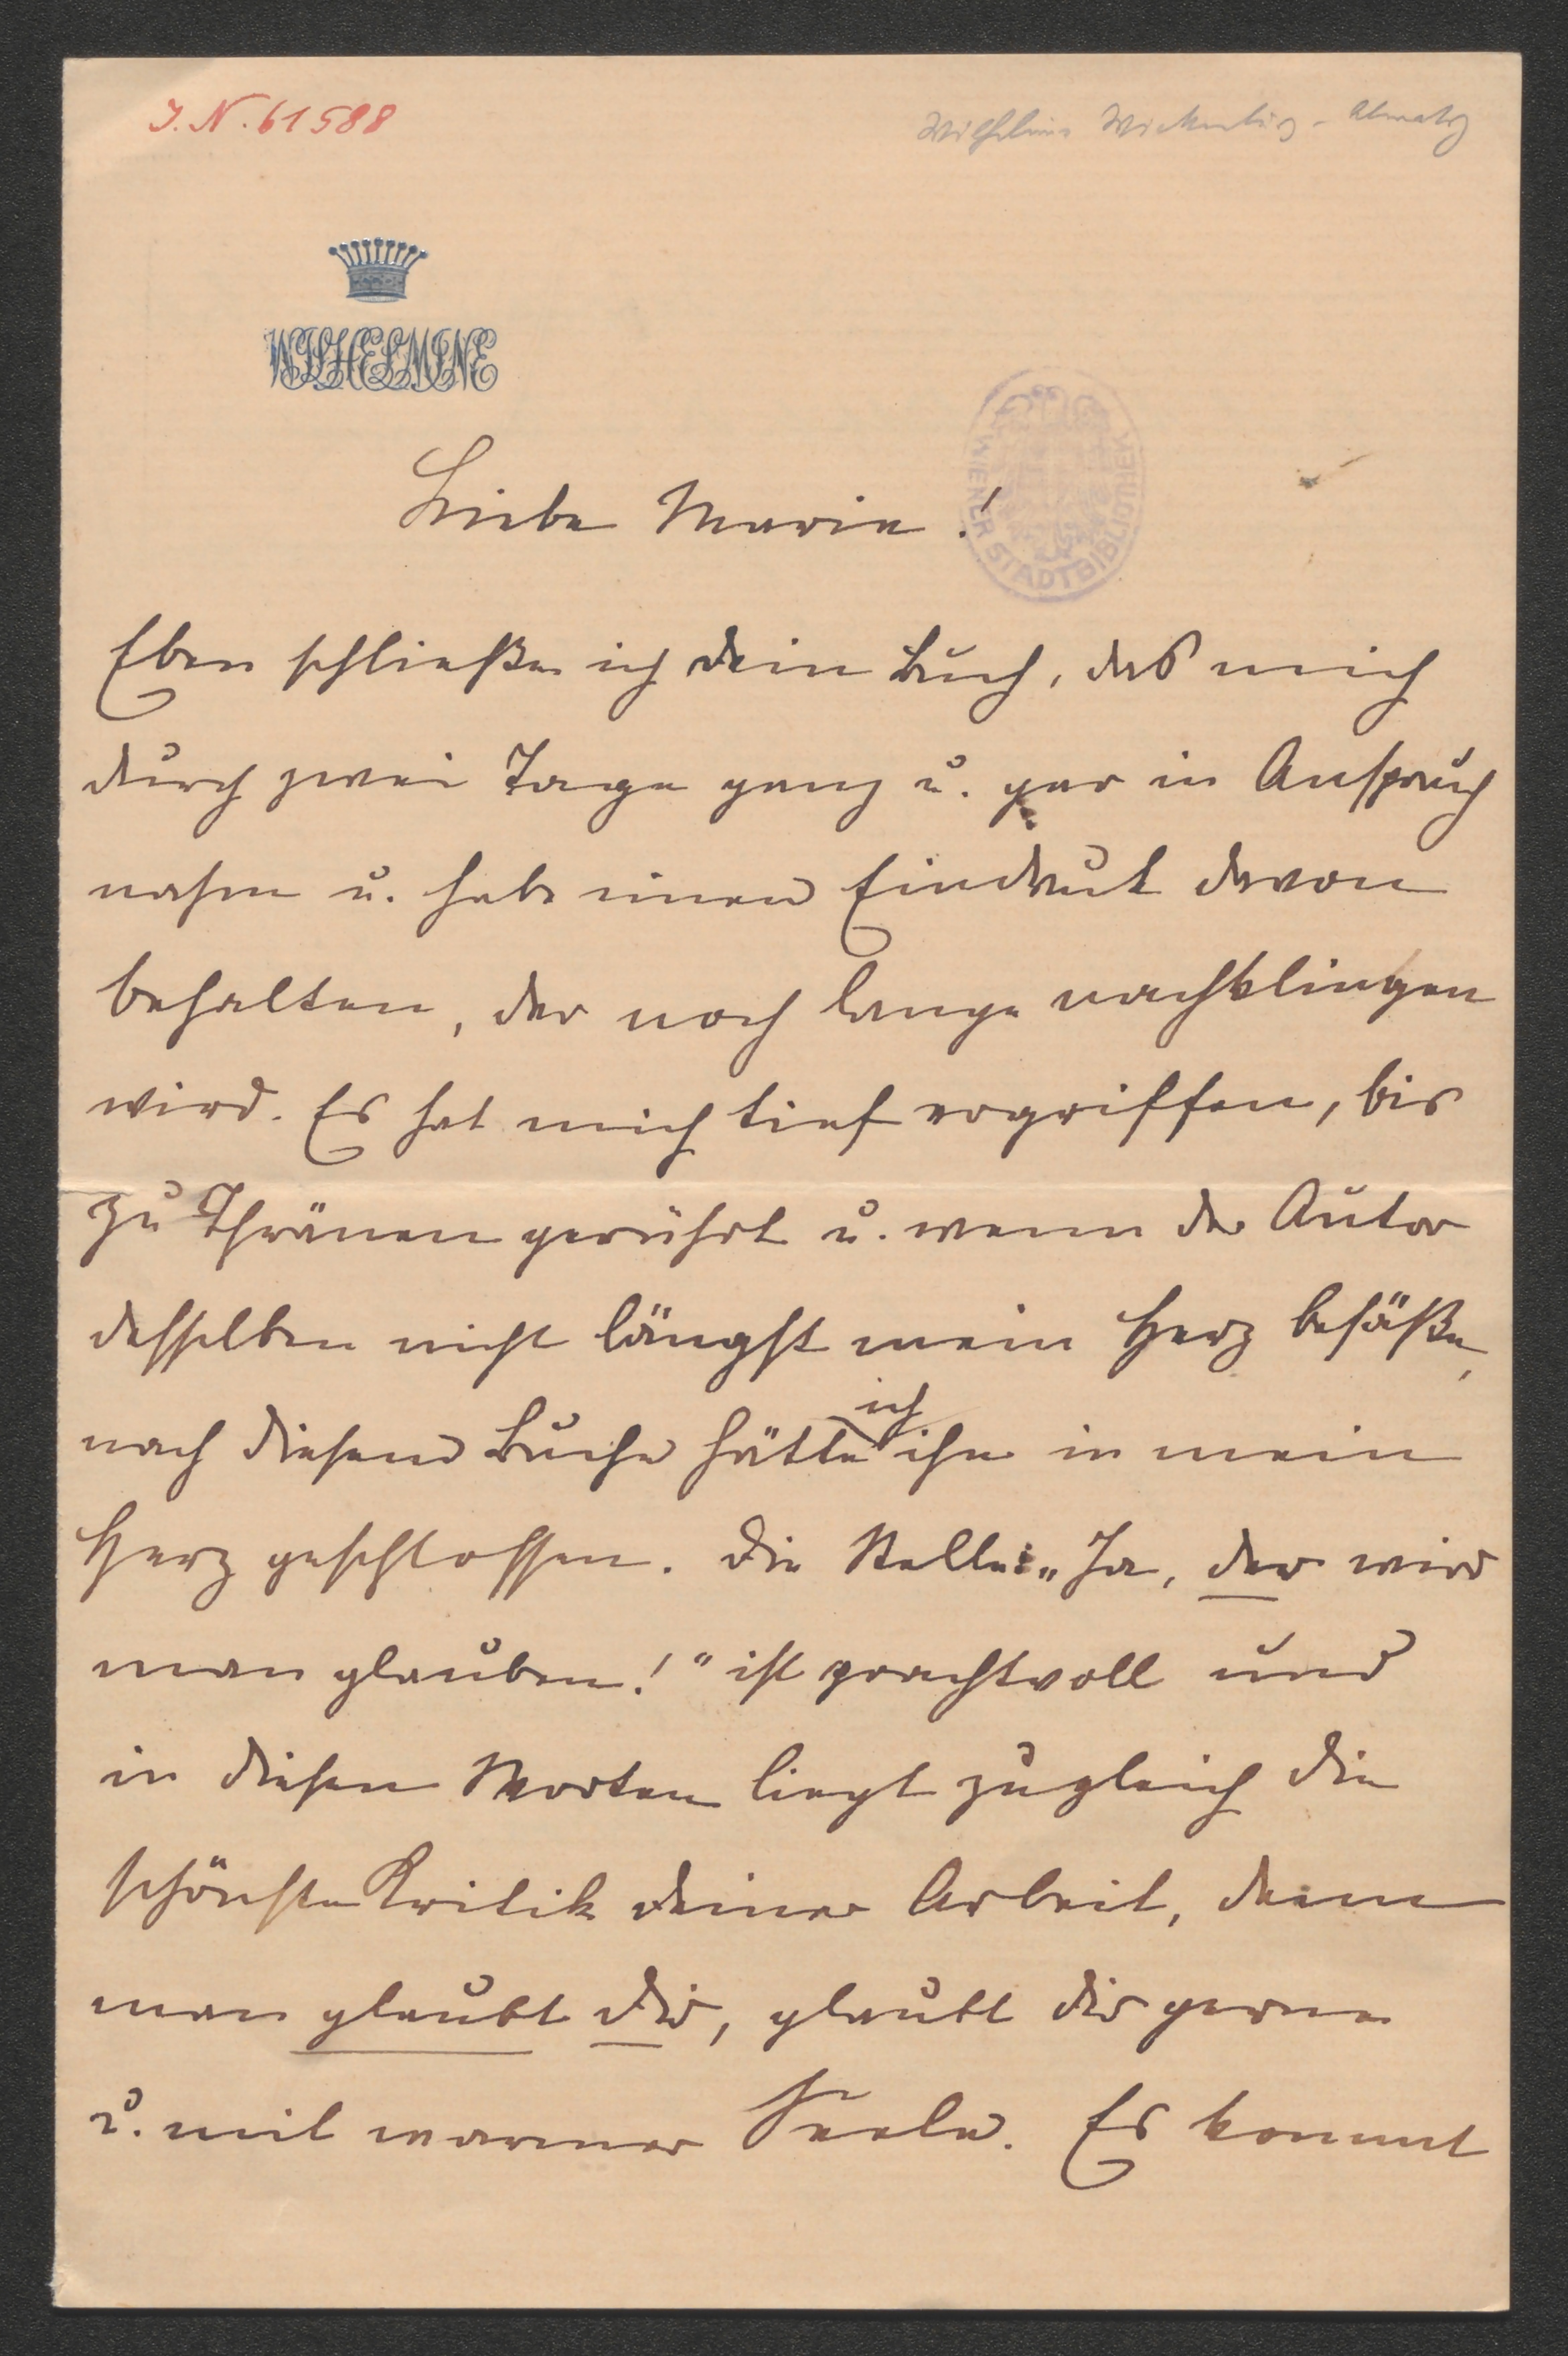 I.N. 61588
Wilhelmine Wickenburg-Almasy
WILHELMINE
WIENER STADTBIBLIOTHEK
Liebe Marie!
Eben schließe ich dein Buch, das mich
durch zwei Tage ganz u. gar in Anspruch
nahm u. habe einen Eindruck davon
behalten, der noch lange nachklingen
wird. Es hat mich tief ergriffen, bis
zu Thränen gerührt u. wenn der Autor
desselben nicht längst mein Herz besäße,
nach diesem Buche hätte ich ihn in mein
Herz geschlossen. Die Stelle: „Ja, der wird
man glauben!" ist prachtvoll und
in diesen Worten liegt zugleich die
schönste Kritik deiner Arbeit, denn
man glaubt dir, glaubt dir gerne
u. mit warmer Seele. Es kommt